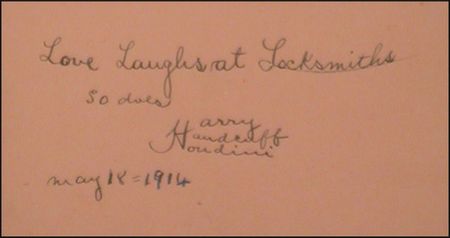 Love Laughs at Locksmiths
So does
Harry
Handcuff
Houdini
May 18=1914